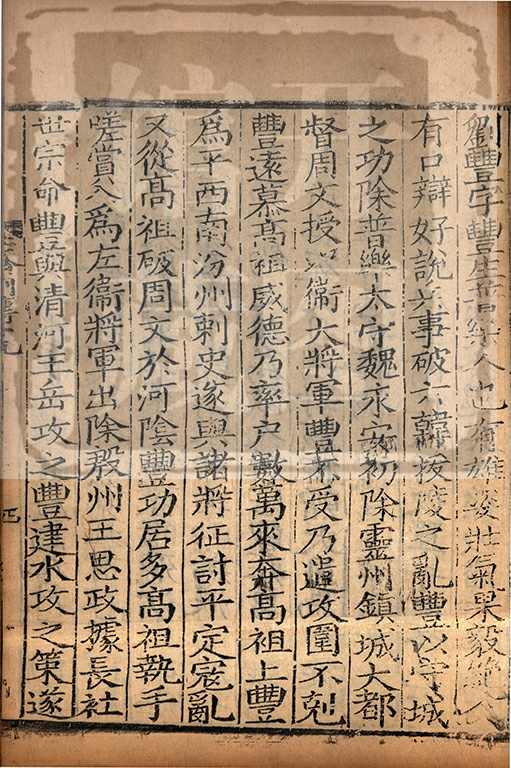 劉豐字豐生普樂人也有雄姿壯氣果毅絕人
有口辯好說兵事破六韓拔陵之亂豐以守城
之功除普樂太守魏永安初除靈州鎮城大都
督周文授以衞大將軍豐不受乃遣攻圍不剋
豐遠慕高祖威德乃率户數萬來奔高祖上豐
爲平西南汾州刺史遂與諸將征討平定寇亂
又從高祖破周文於河陰豐功居多高祖執手
嗟賞入爲左衞將軍出除殷州王思政據長社
世宗命豐與清河王岳攻之豐建水攻之策遂